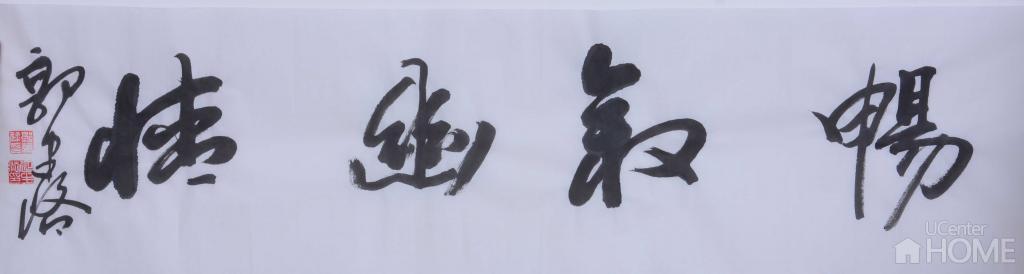 暢叙幽情
郭
UCenter
HOME